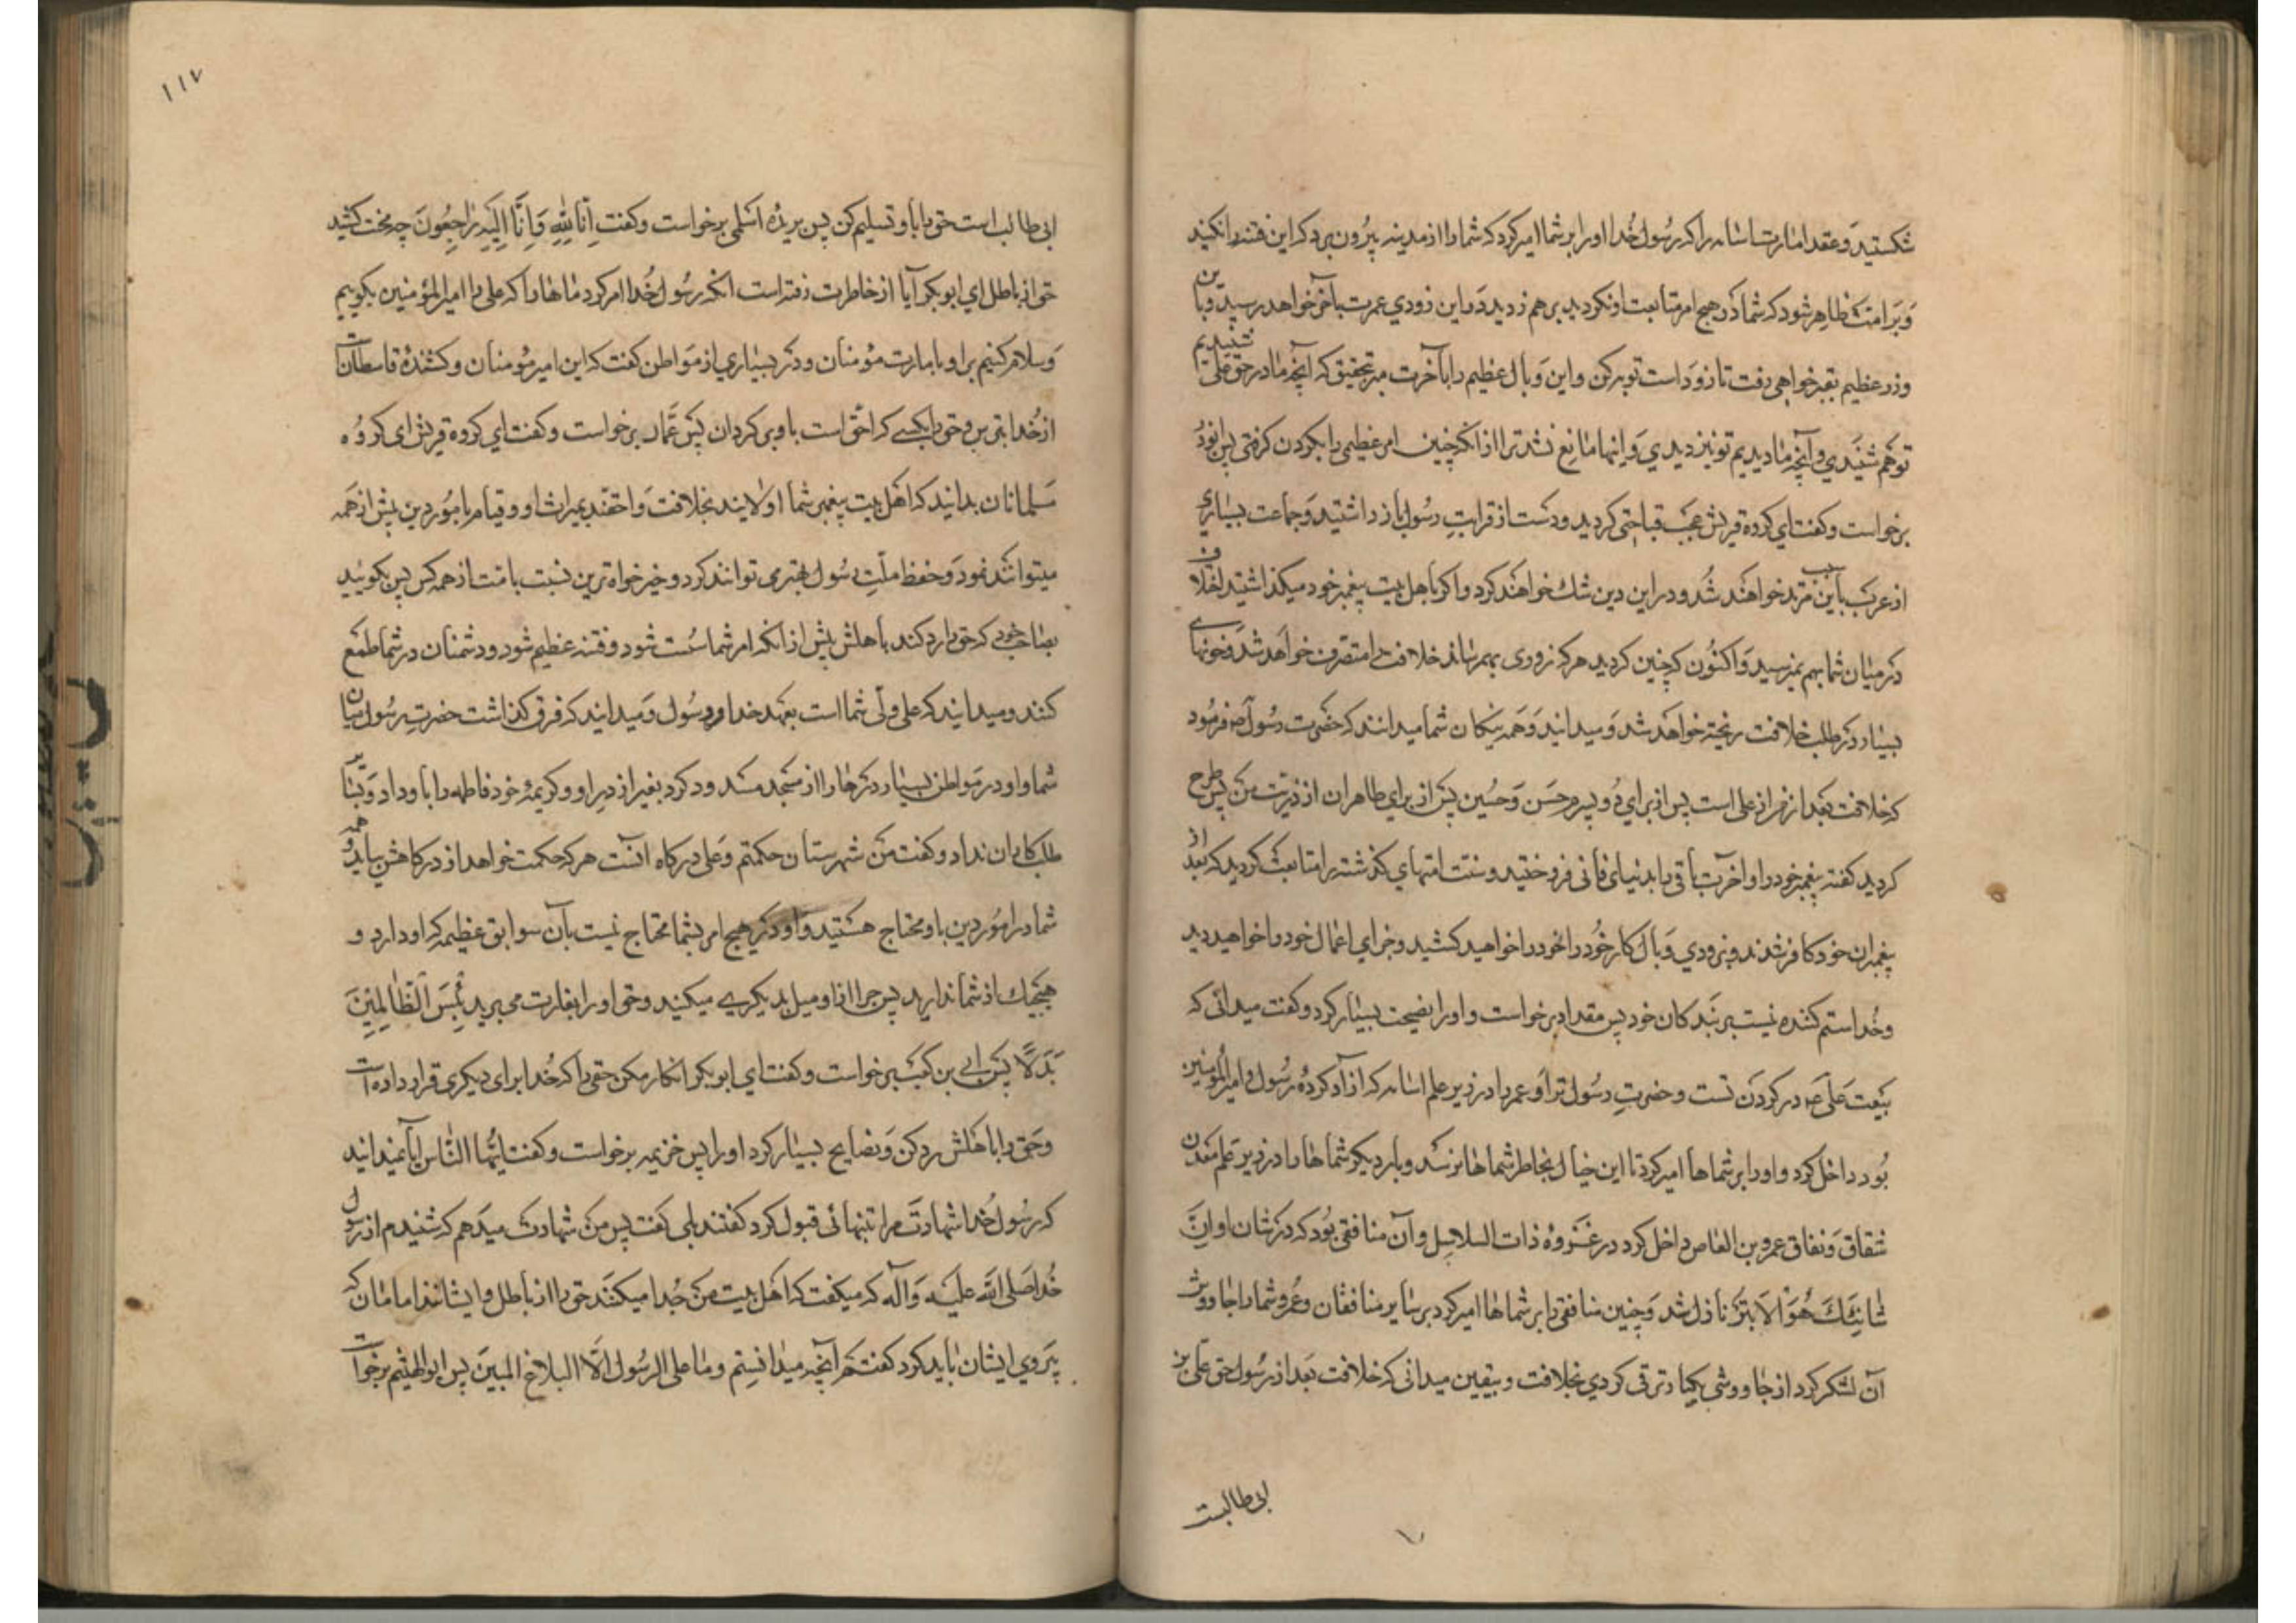 شکستید و عقد امارت اسامه را که رسول خدا او را بر شما امیر کرد که شما را از مدینه بیرون برد که این فتنه را نکنید
و بر امت ظاهر شود که شما در هیچ امر متابعت او نکردید بر هم زدید و باین زودی عمرت بآخر خواهد رسید و با این
وزر عظیم بقبر خواهی رفت تا زود است توبه کن و این وبال عظیم را بآخرت مبر بتحقیق که آنچه ما در حق علی شنیدیم
تو هم شنیدی و آنچه ما دیدیم تو نیز دیدی و اینها مانع نشد ترا از آنکه چنین امر عظیمی را بگردن گرفتی پس ابوذر
برخواست و گفت ای گروه قریش عجب قباحتی کردید و دست از قرابت رسول باز داشتید و جماعت بسیاری
از عرب باین سبب مرتد خواهند شد و در این دین شک خواهند کرد و اگر باهل بیت پیغمبر خود میگذاشتید اختلاف
در میان شما بهم نمیرسید و اکنون که چنین کردید هر که زوری بهم رساند خلافت را متصرف خواهد شد و خونهای
بسیار در طلب خلافت ریخته خواهد شد و میدانید و همه نیکان شما میدانند که حضرت رسول ص فرمود
که خلافت بعد از من از علی است پس از برای دو پسرم حسن و حسین پس از برای طاهران از ذریت من پس طرح
کردید گفته پیغمبر خود را و آخرت باقی را بدنیای فانی فروختید و سنت امتهای گذشته را متابعت کردید که بعد از
پیغمبران خود کافر شدند و بزودی وبال کار خود را خود را خواهید کشید و جزای اعمال خود را خواهید دید
و خدا ستم کننده نیست بر بندگان خود پس مقداد برخواست و او را نصیحت بسیار کرد و گفت میدانی که
بیعت علی ع در گردن تست و حضرت رسول ترا و عمر را در زیر علم اسامه که آزاد کرده رسول و امیر المؤمنین
بود داخل کرد و او را بر شماها امیر کرد تا این خیال بخاطر شماها نرسد و بار دیگر شماها را در زیر علم معدن
شقاق و نفاق عمرو بن العاص داخل کرد در غزوه ذات السلاسل و آن منافقی بود که در شان او اِنَّ
شَانِئَكَ هُوَ الاَبتَرُ نازل شد و چنین منافقی را بر شماها امیر کرد بر سایر منافقان و عمرو شما را جاووش
آن لشکر کرد از جاووشی یکبار ترقی کردی بخلافت و بیقین میدانی که خلافت بعد از رسول حق علی بن
ابی طالبست
۱۱۷
ابی طالب است حق را باو تسلیم کن پس بریده اسلمی برخواست و گفت اِنّا لِلّهِ وَ اِنَّا اِلَیهِ رَاجِعُونَ چه محنت کشید
حق از باطل ای ابوبکر آیا از خاطرت رفته است آنکه رسول خدا امر کرد ماها را که علی را امیر المؤمنین بگوییم
و سلام کنیم بر او بامارت مؤمنان و در بسیاری از مواطن گفت که این امیر مؤمنان و کشندهٔ قاسطان است
از خدا بترس و حق را بکسی که احق است باو بر گردان پس عمار برخواست و گفت ای گروه قریش ای گروه
مسلمانان بدانید که اهل بیت پیغمبر شما اولایند بخلافت و احقند بمیراث او و قیام بامور دین بیش از همه
میتوانند نمود و حفظ ملت رسول بهتر می توانند کرد و خیر خواه ترین نسبت بامت از همه کس پس بگوئید
بصاحب خود که حق را رد کند باهلش پیش از آنکه امر شما سست شود و فتنه عظیم شود و دشمنان در شما طمع
کنند و میدانید که علی ولی شما است بعهد خدا و رسول و میدانید که فرق گذاشت حضرت رسول میان
شما و او در مواطن بسیار درهای را از مسجد مسدود کرد بغیر از در او و کریمهٔ خود فاطمه را باو داد و بسایر
طلبکاران نداد و گفت من شهرستان حکمتم و علی درگاه آنست هر که حکمت خواهد از درگاهش بیاید و همه
شما در امور دین باو محتاج هستید و او در هیچ امر بشما محتاج نیست بآن سوابق عظیمه که او دارد و
هیچیک از شما ندارید پس چرا از او میل بدیگری میکنید و حق او را بغارت می برید بِئسَ لِلظَّالِمِینَ
بَدَلًا پس ابی بن کعب برخواست و گفت ای ابوبکر انکار مکن حقی را که خدا برای دیگری قرار داده است
و حق را باهلش رد کن و نصایح بسیار کرد او را پس خزیمه برخواست و گفت ایها الناس آیا نمیدانید
که رسول خدا شهادت مرا تنهائی قبول کرد گفتند بلی گفت پس من شهادت میدهم که شنیدم از رسول
خدا صلی الله علیه و آله که میگفت که اهل بیت من جدا میکنند حق را از باطل و ایشانند امامان که
پیروی ایشان باید کرد گفتم آنچه میدانستم و ما علی الرسول الّا البلاغ المبین پس ابو الهیثم برخواست